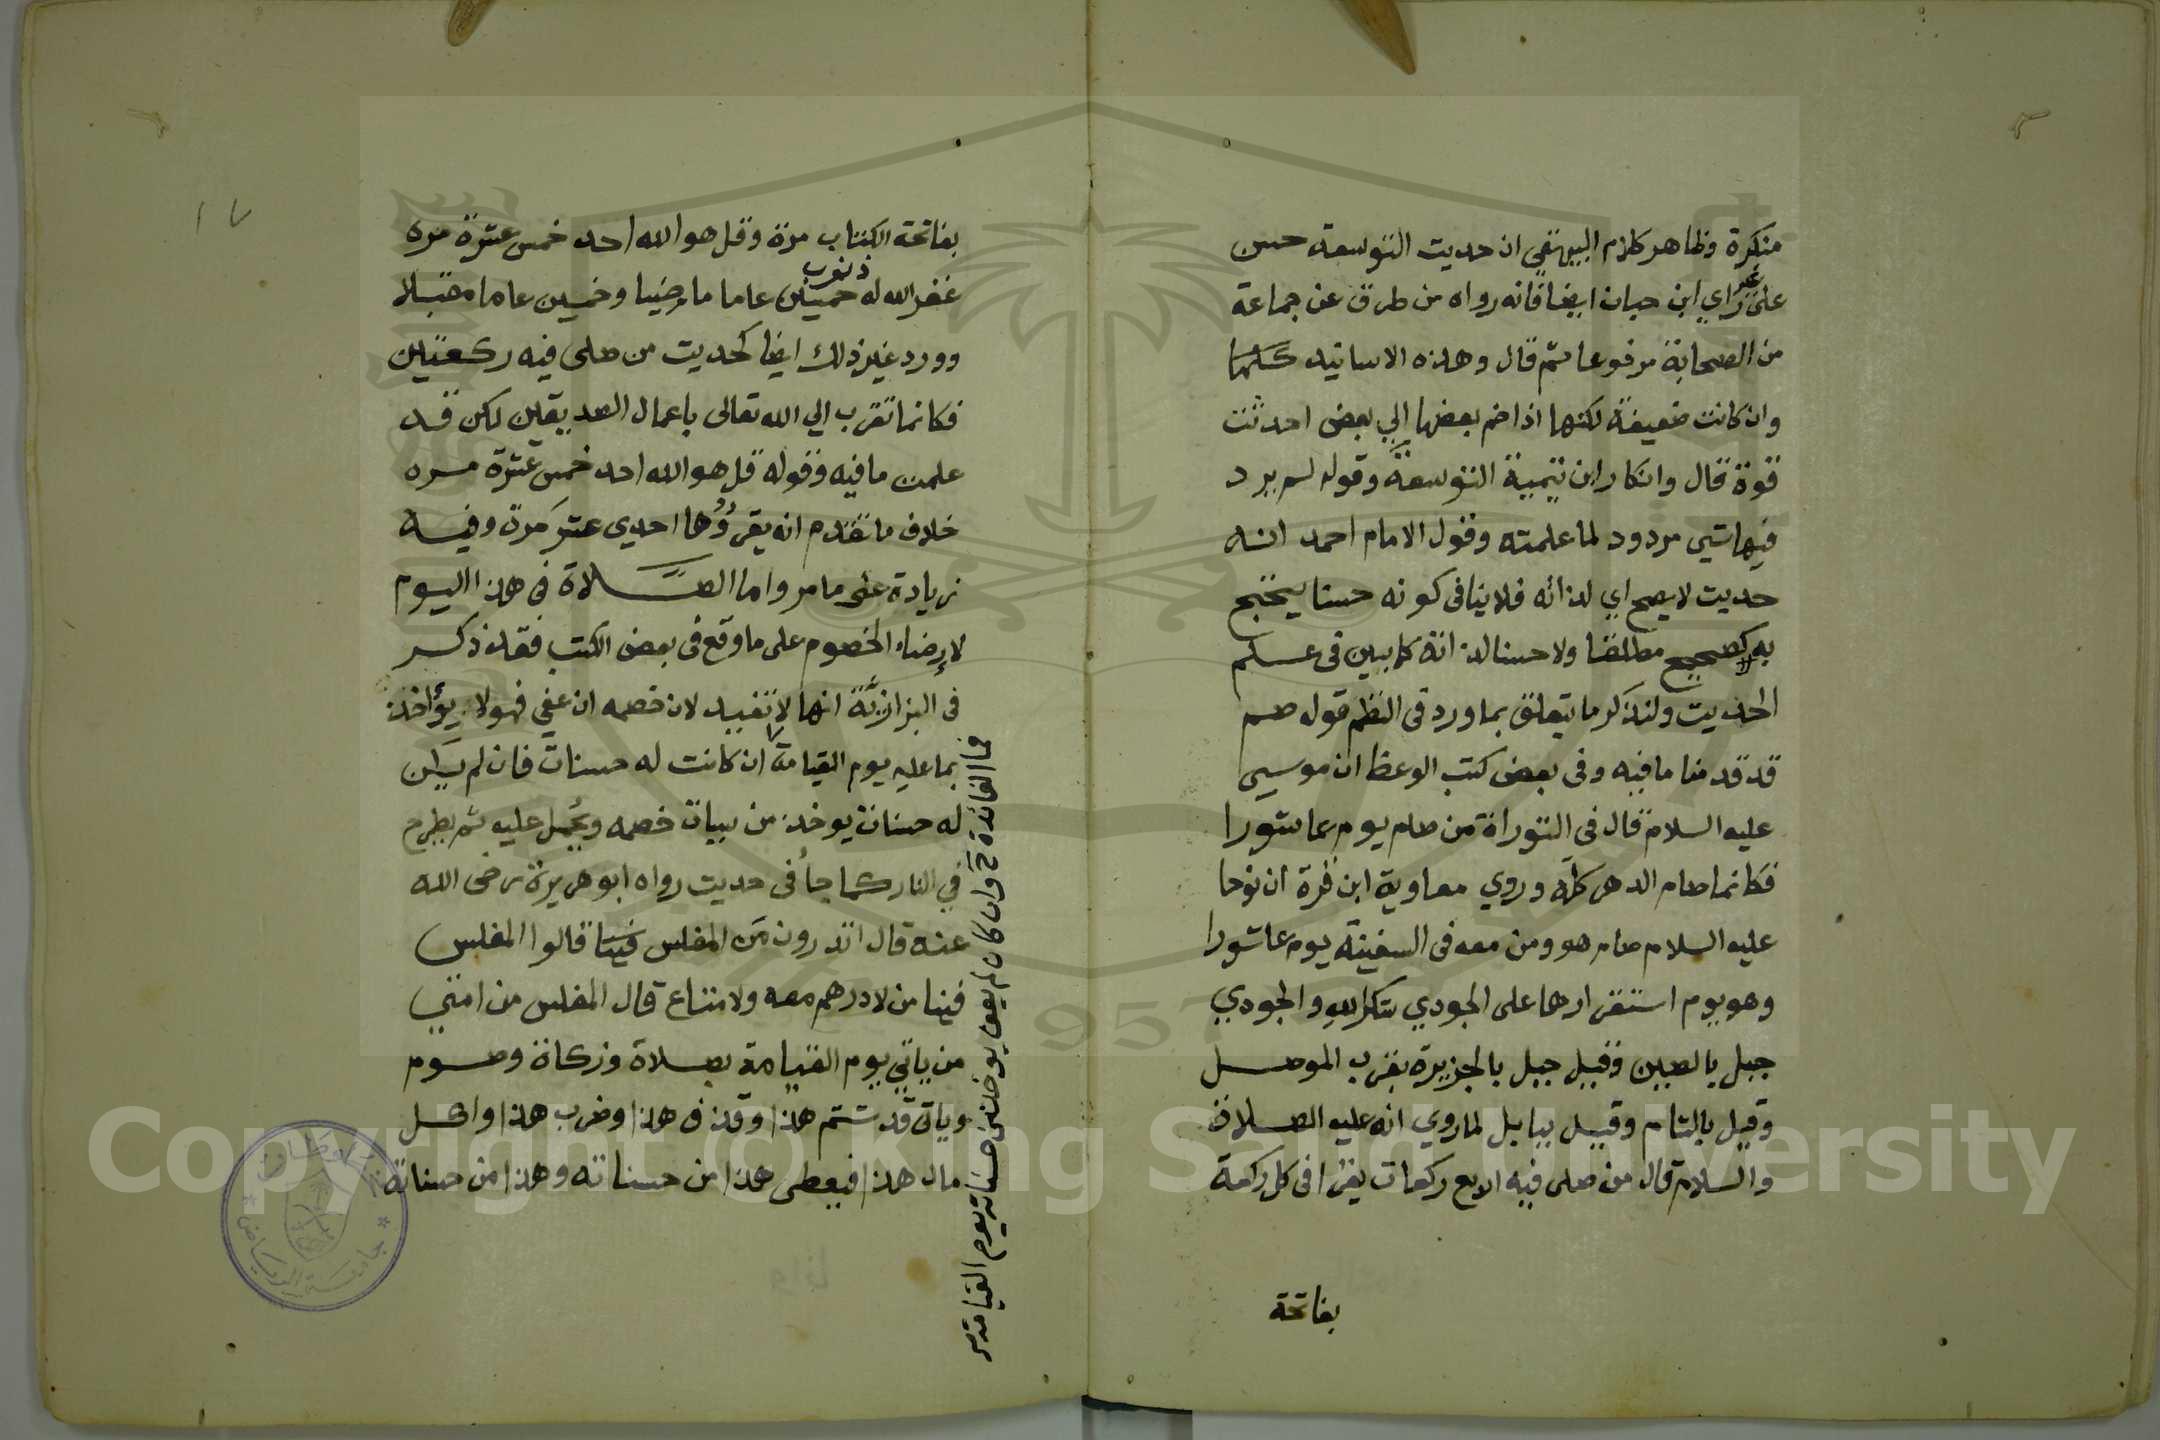 منكرة وظاهر كلام البيهقي ان حديث التوسعة حسن
على غير راي ابن حبان ايضا فانه رواه من طرق عن جماعة
من الصحابة مرفوعا ثم قال وهذه الاسانيد كلها
وان كانت ضعيفة لكنها اذا ضم بعضها الي بعض احدثت
قوة قال وانكار ابن تيمية التوسعة وقوله لم يرد
فيها شي مردود لما علمته وقول الامام احمد انه
حديث لا يصح اي لذاته فلا ينافى كونه حسنا يحتج
به كصحيح مطلقا ولا حسنا لذاته كما بين فى علم
الحديث ولنذكر ما يتعلق بما ورد فى النظم قوله صم
قد قدمنا ما فيه وفى بعض كتب الوعظ ان موسي
عليه السلام قال فى التوراة من صام يوم عاشورا
فكانما صام الدهر كله وروي معاوية ابن قرة ان نوحا
عليه السلام صام هو ومن معه فى السفينة يوم عاشورا
وهو يوم استقرارها على الجودي شكرا لله والجودي
جبل بالصين وقيل جبل بالجزيرة بقرب الموصل
وقيل بالشام وقيل ببابل لما روي انه عليه الصلاة
والسلام قال من صلى فيه الاربع ركعات يقرا فى كل ركعة
بفاتحة
بفاتحة الكتاب مرة وقل هو الله احد خمس عشرة مرة
غفر الله له ذنوب خمسين عاما ماضيا وخمسين عاما مقبلا
وورد غير ذلك ايضا كحديث من صلى فيه ركعتين
فكانما تقرب الي الله تعالى باعمال الصديقين لكن قد
علمت ما فيه وقوله قل هو الله احد خمس عشرة مره
خلاف ما تقدم انه يقرؤها احدي عشر مرة وفيه
زيادة على ما مر واما الصلاة فى هذا اليوم
لارضاء الخصوم على ما وقع فى بعض الكتب فقد ذكر
فى البزازية انها لا تفيد لان خصمه ان عفي فهو لا يؤاخذ
بما عليه يوم القيامة ان كانت له حسنات فان لم يكن
له حسنات يوخذ من سيات خصمه ويحمل عليه ثم يطرح
في النار كما جاء فى حديث رواه ابو هريرة رضى الله
عنه قال اتدرون من المفلس فينا قالوا المفلس
فينا من لا درهم معه ولا متاع قال المفلس من امتي
من ياتي يوم القيامة بصلاة وزكاة وصوم
وياتى قد شتم هذا وقذف هذا وضرب هذا واكل
مال هذا فيعطى هذا من حسناته وهذا من حسناته
فما الفائدة ح وان كان لم يعف يوخذ من حسناته يوم القيامة
١٧
جامعة الرياض
Copyright © King Saud University
957